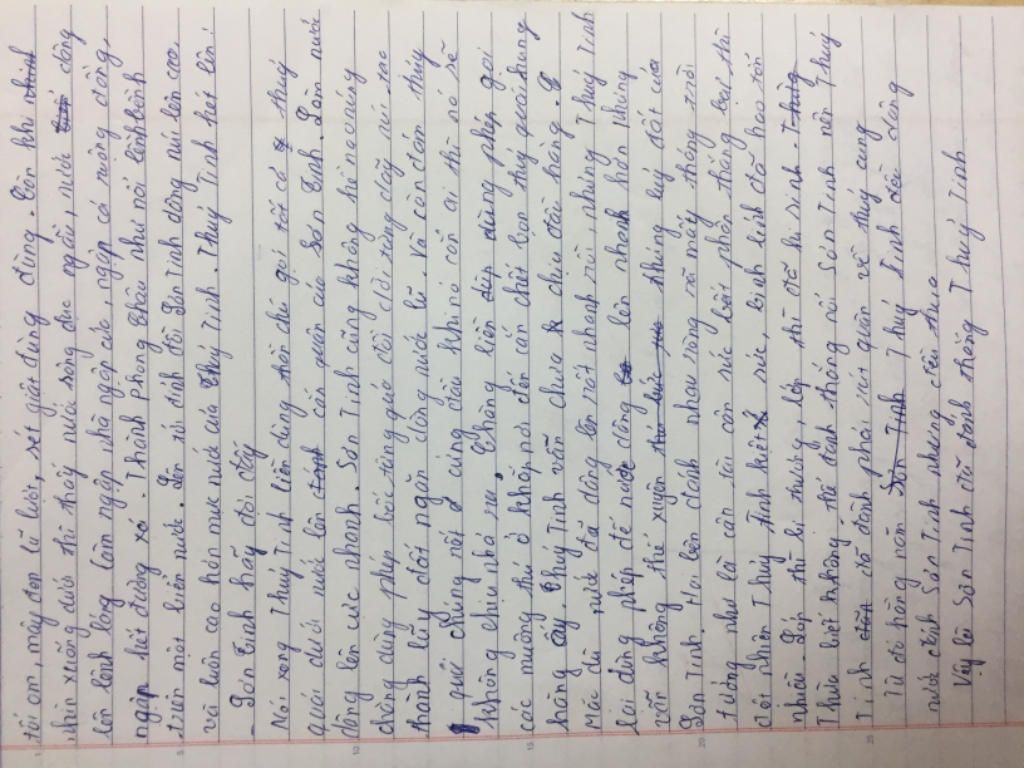 tối om, mây đen lũ lượt, sét giật đùng đùng. Đôi khi nhình
nhìn xuống dưới thì thấy nước sông đục ngầu, nước dâng
lên lênh láng làm ngập nhà ngập cửa, ngập cả ruộng đồng,
ngập hết đường xá. Thành Phong Châu như nổi lềnh bềnh
trên một biển nước. Lần tới đánh đồi Sơn Tinh dâng núi lên cao,
và luôn cao hơn mực nước của Thuỷ Tinh. Thuỷ Tinh hét lên:
- Sơn Tinh hãy đợi đấy
Nói xong Thuỷ Tinh liền dùng thần chú gọi tất cả thuỷ
quái dưới nước lên đánh cản quân của Sơn Tinh. Dòng nước
dâng lên cực nhanh. Sơn Tinh cũng không hề nao núng
chàng dùng phép bốc từng quả đồi dời từng dãy núi tạo
thành lũy đất ngăn dòng nước lũ. Và còn đám thuỷ
quái chúng rất cứng đầu khi nó cắn ai thì nó sẽ
không chịu nhả ra. Chàng liền dùng phép gọi
các muông thú ở khắp nơi đến cắn chết bọn thuỷ quái hung
hăng ấy. Thuỷ Tinh vẫn chưa chịu đầu hàng.
Mặc dù nước đã dâng lên rất nhanh rồi, nhưng Thuỷ Tinh
lại dùng phép để nước dâng lên nhanh hơn nhưng
vẫn không thể xuyên thủng luỹ đất của
Sơn Tinh. Hai bên đánh nhau ròng rã mấy tháng trời
tưởng như là cân tài cân sức bất phân thắng bại thì
đột nhiên Thuỷ Tinh kiệt sức, binh lính đã hao tổn
nhiều. Lớp thì bị thương, lớp thì đã hi sinh. Thuỷ
Thừa biết không thể đánh thắng nổi Sơn Tinh nên Thuỷ
Tinh đã đành phải rút quân về thuỷ cung
Từ đó hằng năm Thuỷ Tinh đều dâng
nước đánh Sơn Tinh nhưng đều thua
Vậy là Sơn Tinh đã đánh thắng Thuỷ Tinh